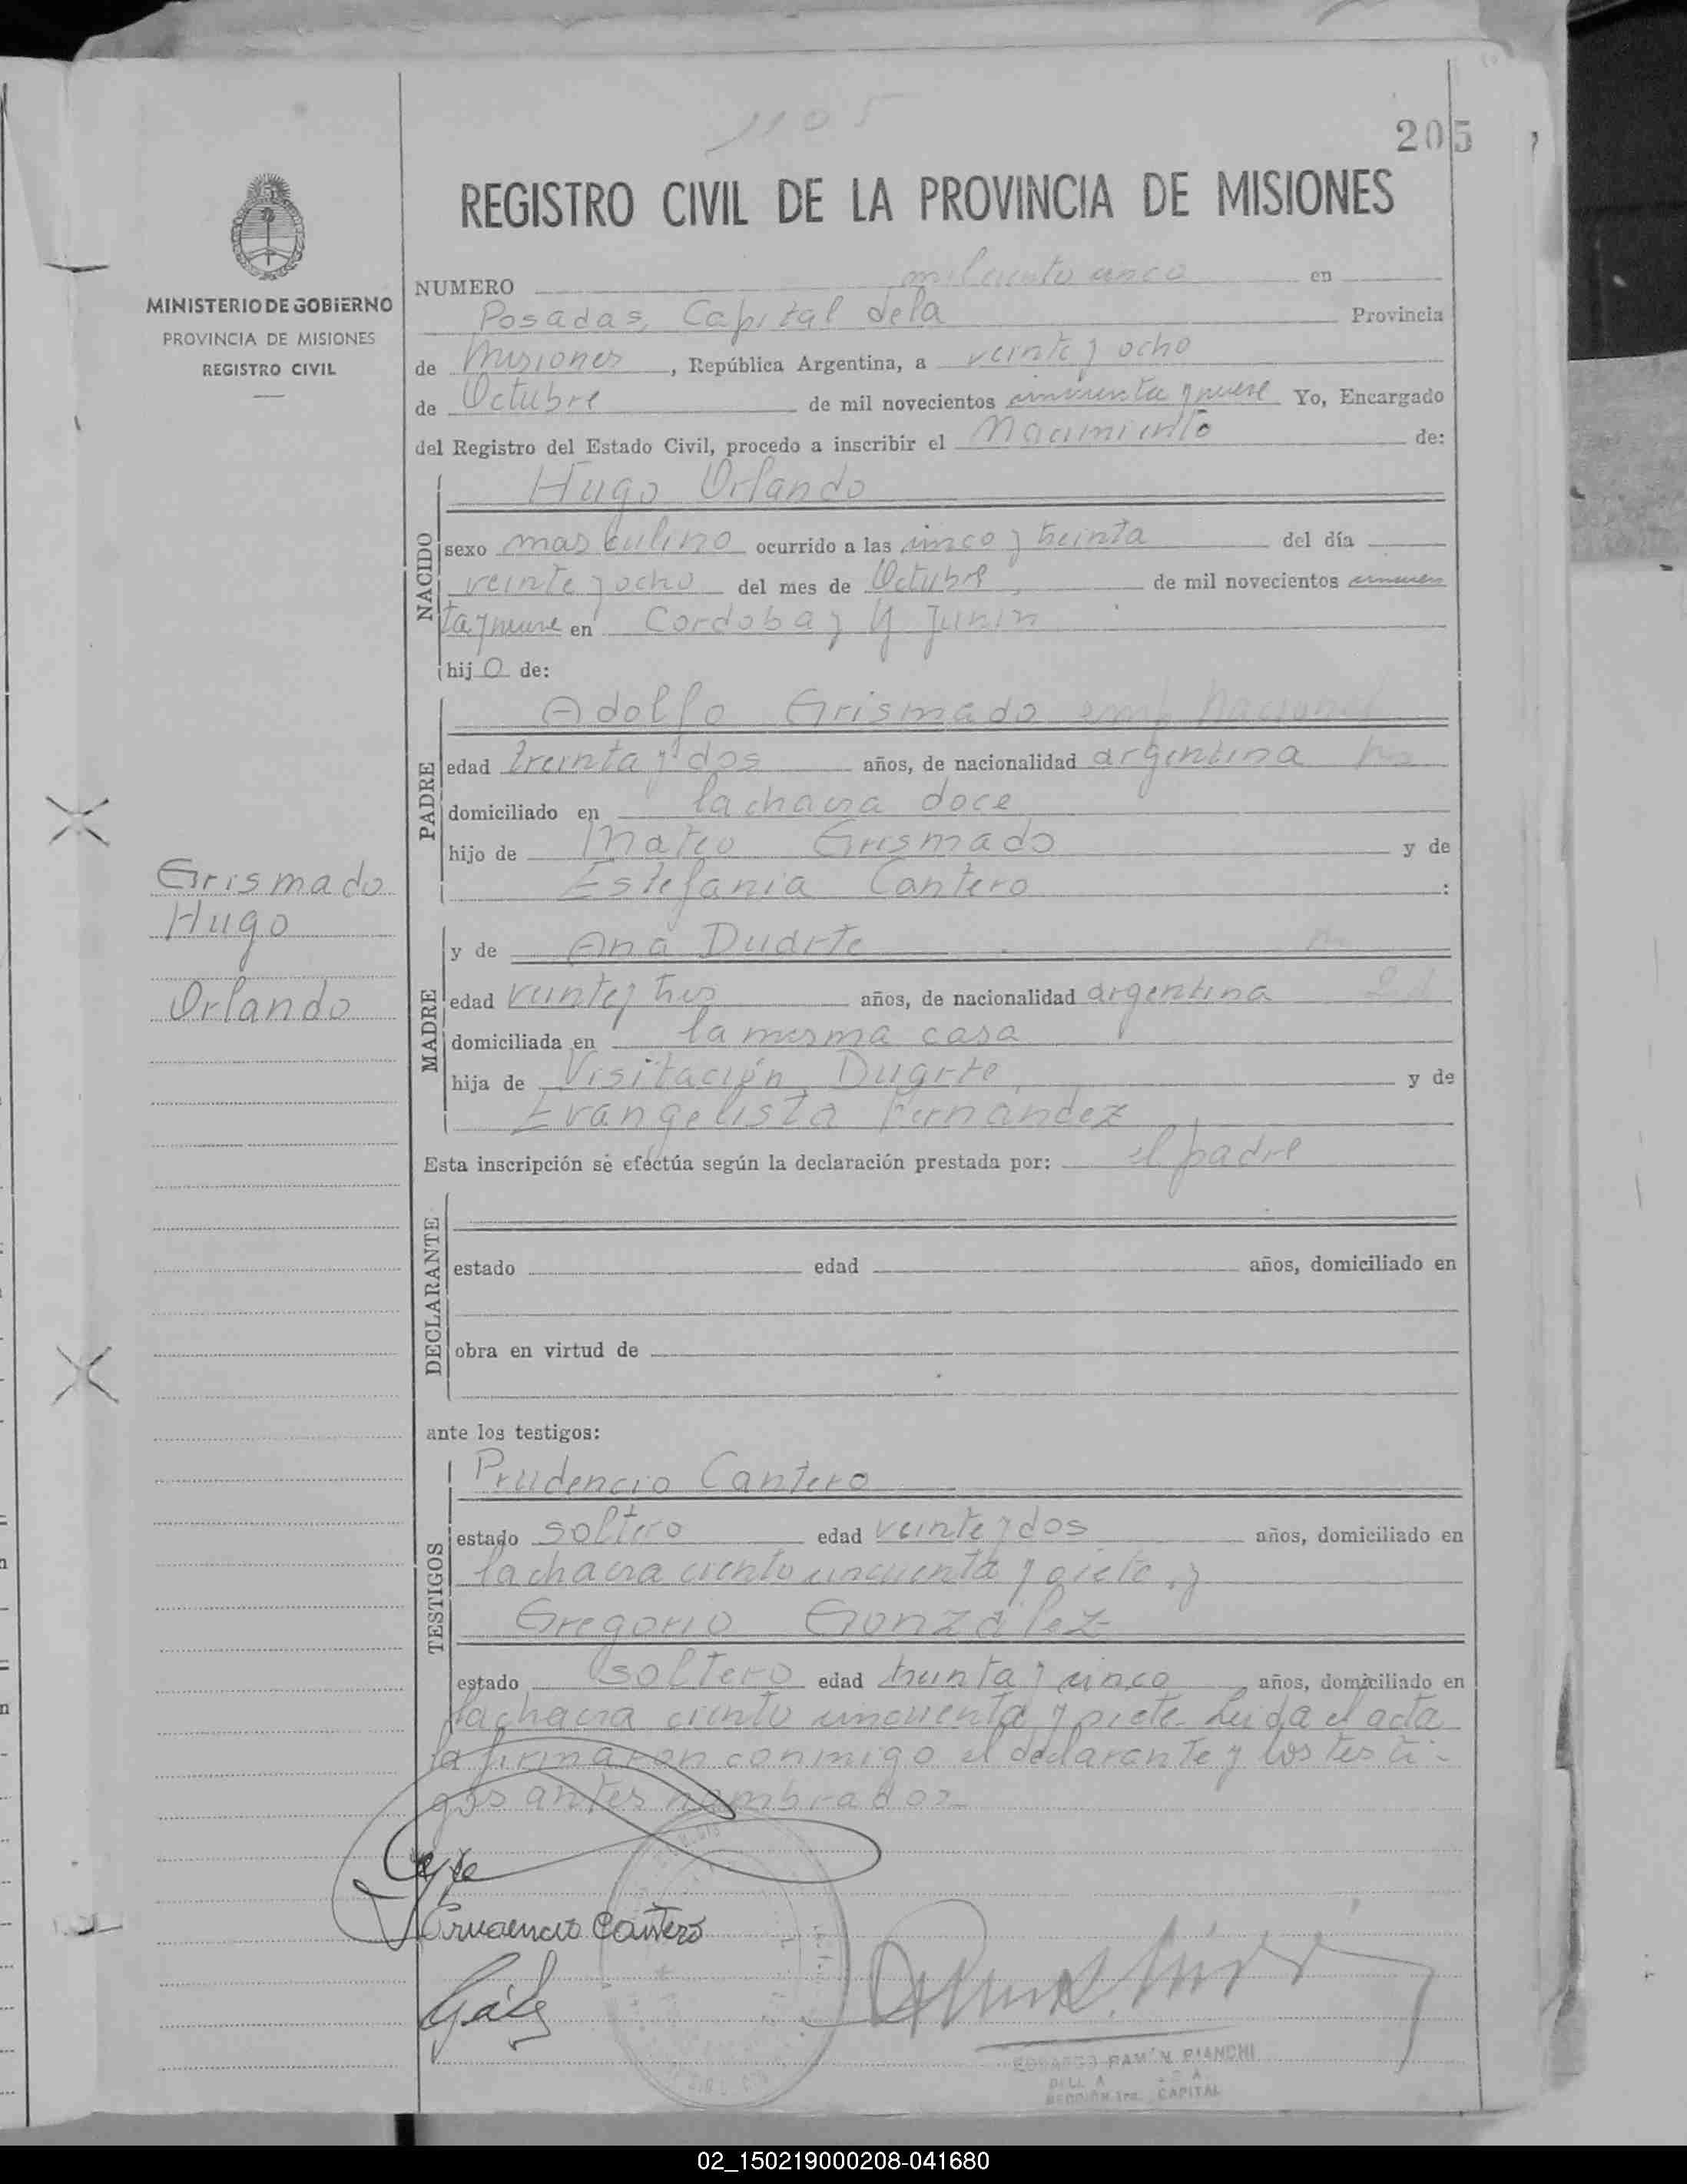 1105
205
REGISTRO CIVIL DE LA PROVINCIA DE MISIONES
MINISTERIO DE GOBIERNO
PROVINCIA DE MISIONES
REGISTRO CIVIL
NUMERO mil ciento cinco en
Posadas, Capital de la Provincia
de Misiones, República Argentina, a veinte y ocho
de Octubre de mil novecientos cincuenta y nueve Yo, Encargado
del Registro del Estado Civil, procedo a inscribir el Nacimiento de:
NACIDO
Hugo Orlando
sexo masculino ocurrido a las cinco y treinta del día
veinte y ocho del mes de Octubre, de mil novecientos cincuen
ta y nueve en Cordoba y Junin
hijo de:
PADRE
Adolfo Grismado emp. Nacional
edad treinta y dos años, de nacionalidad argentina
domiciliado en la chacra doce
hijo de Mateo Grismado y de
Estefania Cantero :
Grismado
Hugo
Orlando
MADRE
y de Ana Duarte
edad veinte y tres años, de nacionalidad argentina
domiciliada en la misma casa
hija de Visitación Duarte, y de
Evangelista Fernández
Esta inscripción se efectúa según la declaración prestada por: el padre
DECLARANTE
estado edad años, domiciliado en
obra en virtud de
ante los testigos:
TESTIGOS
Prudencio Cantero
estado soltero edad veinte y dos años, domiciliado en
la chacra ciento cincuenta y siete, y
Gregorio González
estado soltero edad treinta y cinco años, domiciliado en
la chacra ciento cincuenta y siete. Leida el acta
la firmaron conmigo el declarante y los testi-
gos antes nombrados
Prudencio Cantero
EDUARDO RAMÓN BIANCHI
CAPITAL
02_150219000208-041680